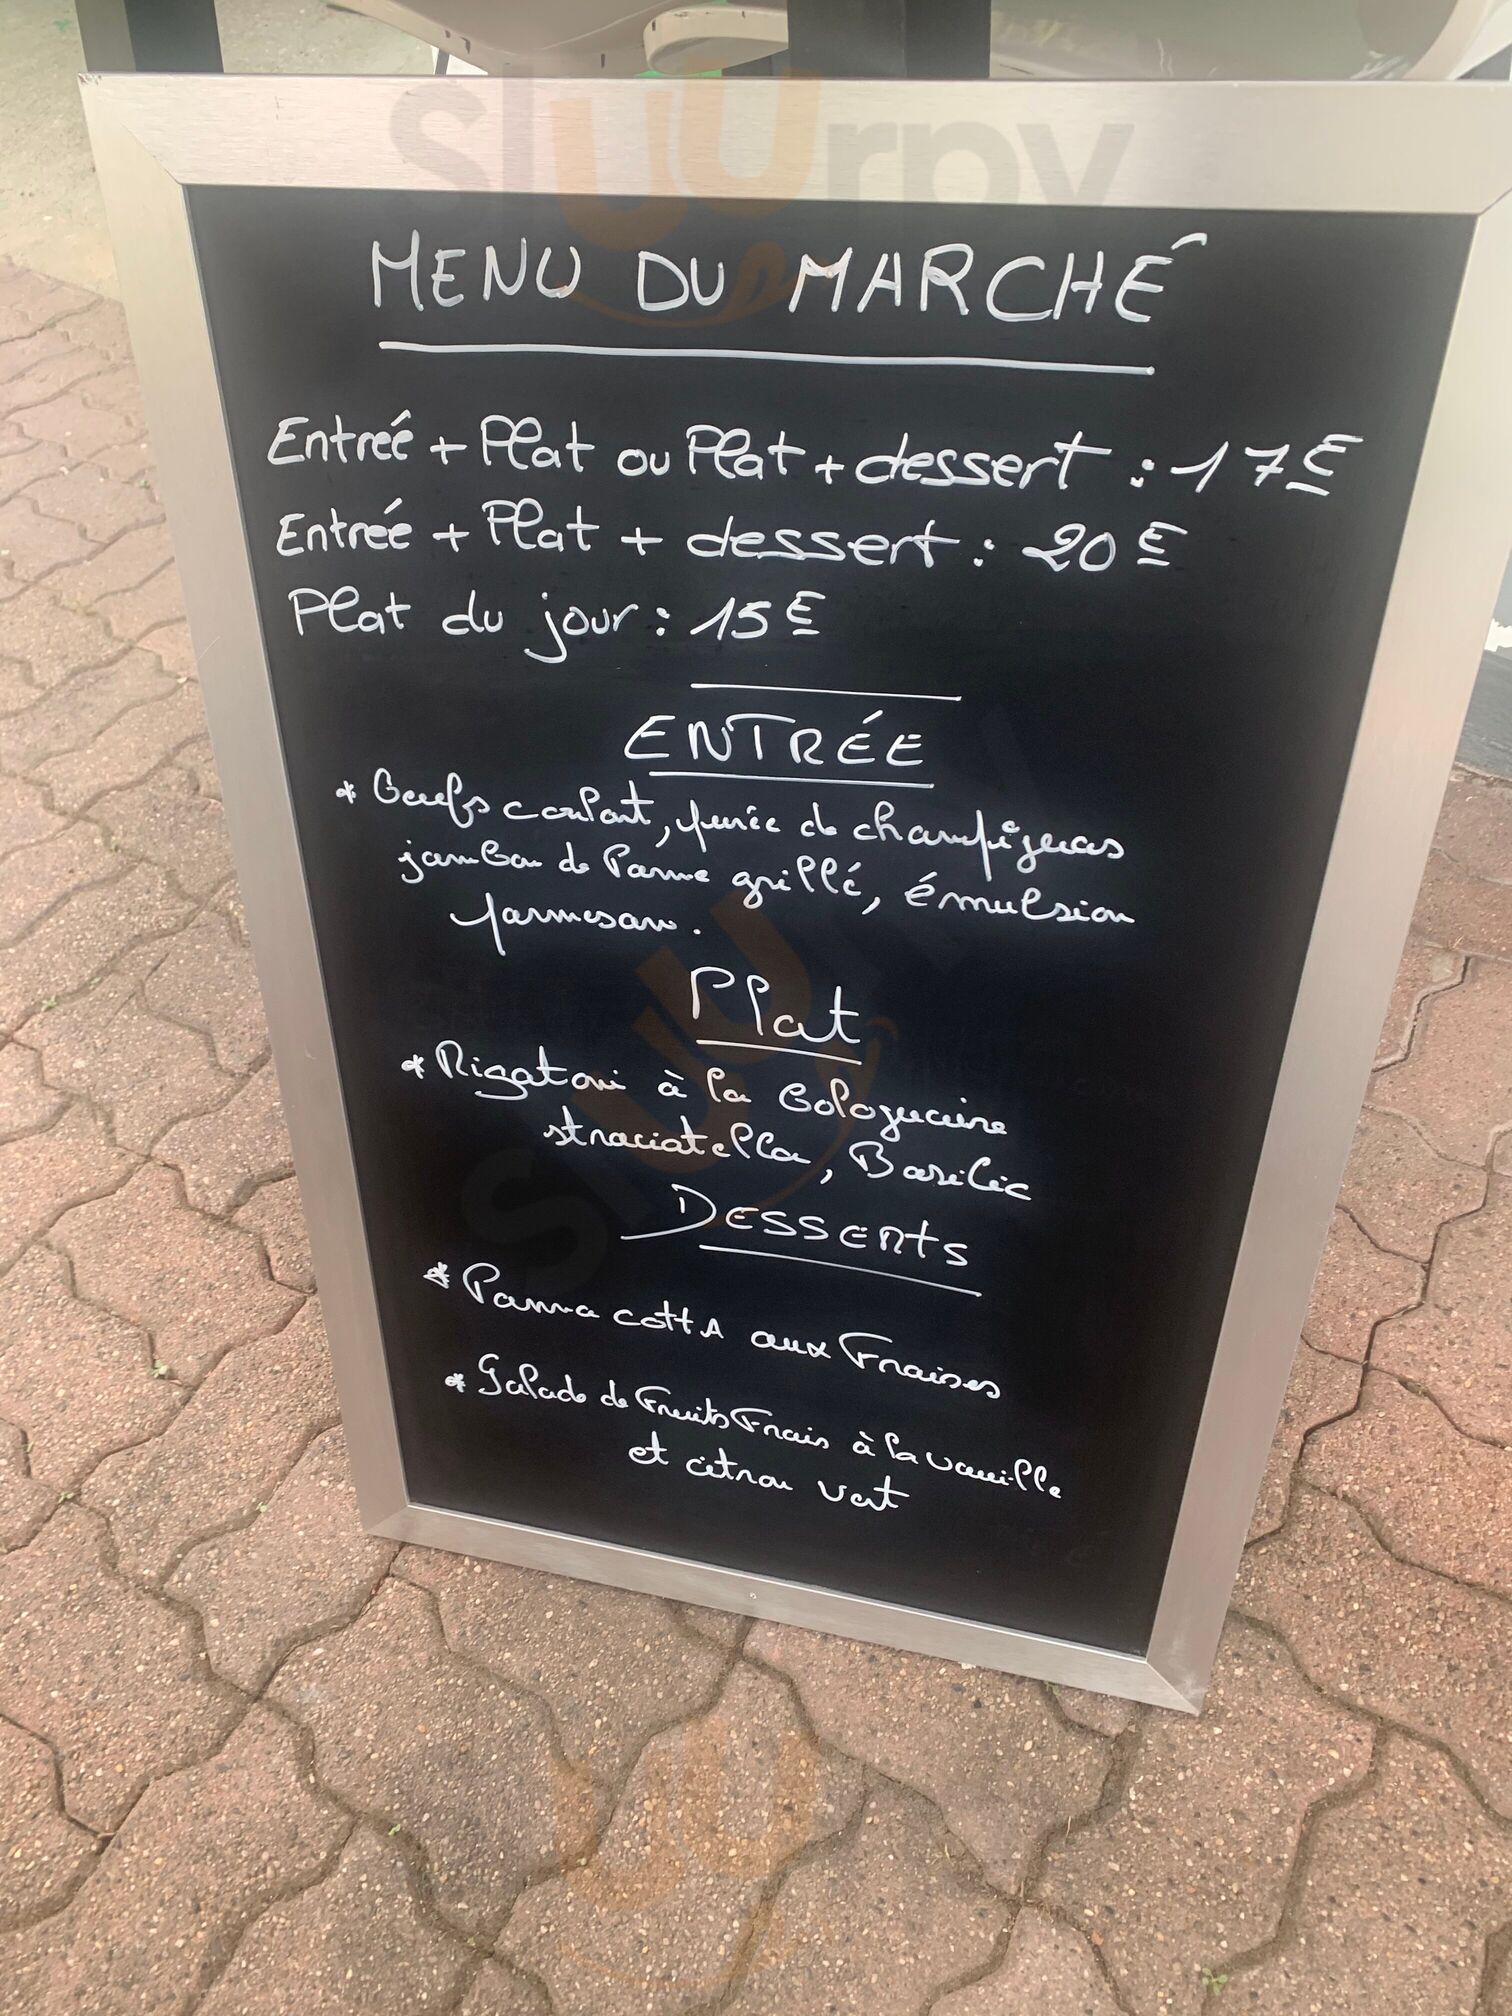 sluurpy
MENU DU MARCHÉ
Entrée + Plat ou Plat + dessert : 17€
Entrée + Plat + dessert : 20€
Plat du jour : 15€
ENTRÉE
* Oeufs coulant, purée de champignons
jambon de Parme grillé, émulsion
parmesan.
Plat
* Rigatoni à la bolognaise
straciatella, Basilic
DESSERTS
* Panna cotta aux Fraises
* Salade de Fruits Frais à la vanille
et citron vert